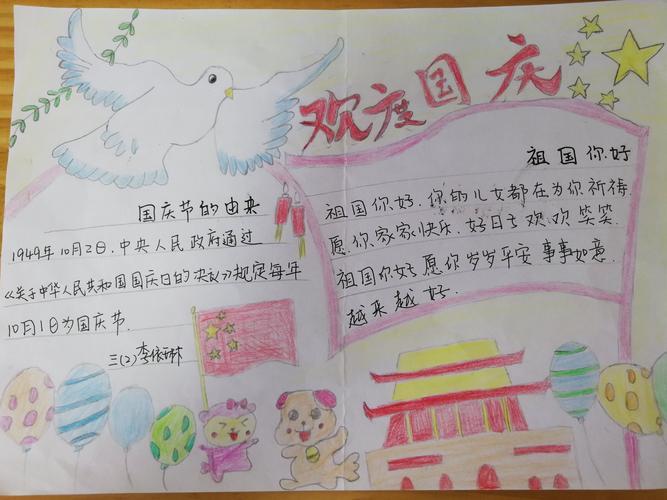 欢度国庆
国庆节的由来
1949年10月2日,中央人民政府通过
《关于中华人民共和国国庆日的决议》规定每年
10月1日为国庆节.
三(2)李依琳
祖国你好
祖国你好.你的儿女都在为你祈祷.
愿你家家快乐.好日子欢欢笑笑.
祖国你好愿你岁岁平安 事事如意.
越来越好.